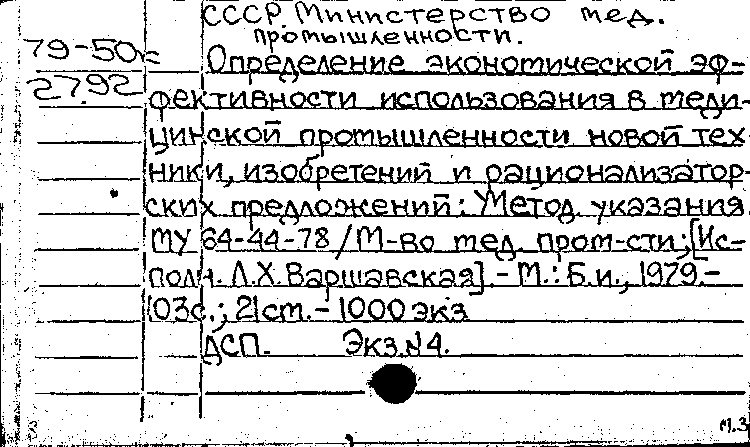 СССР. Министерство мед.
промышленности.
79-50=
2792
Определение экономической эф-
фективности использования в меди-
цинской промышленности новой тех
ники, изобретений и рационализатор-
ских предложений: Метод. указания
МУ 64-44-78/М-во мед. пром-сти; [Ис-
полн. Л.Х. Варшавская]. - М.: Б.и., 1979. -
103с.; 21см. - 1000 экз
ДСП. Экз. №4.
М.З